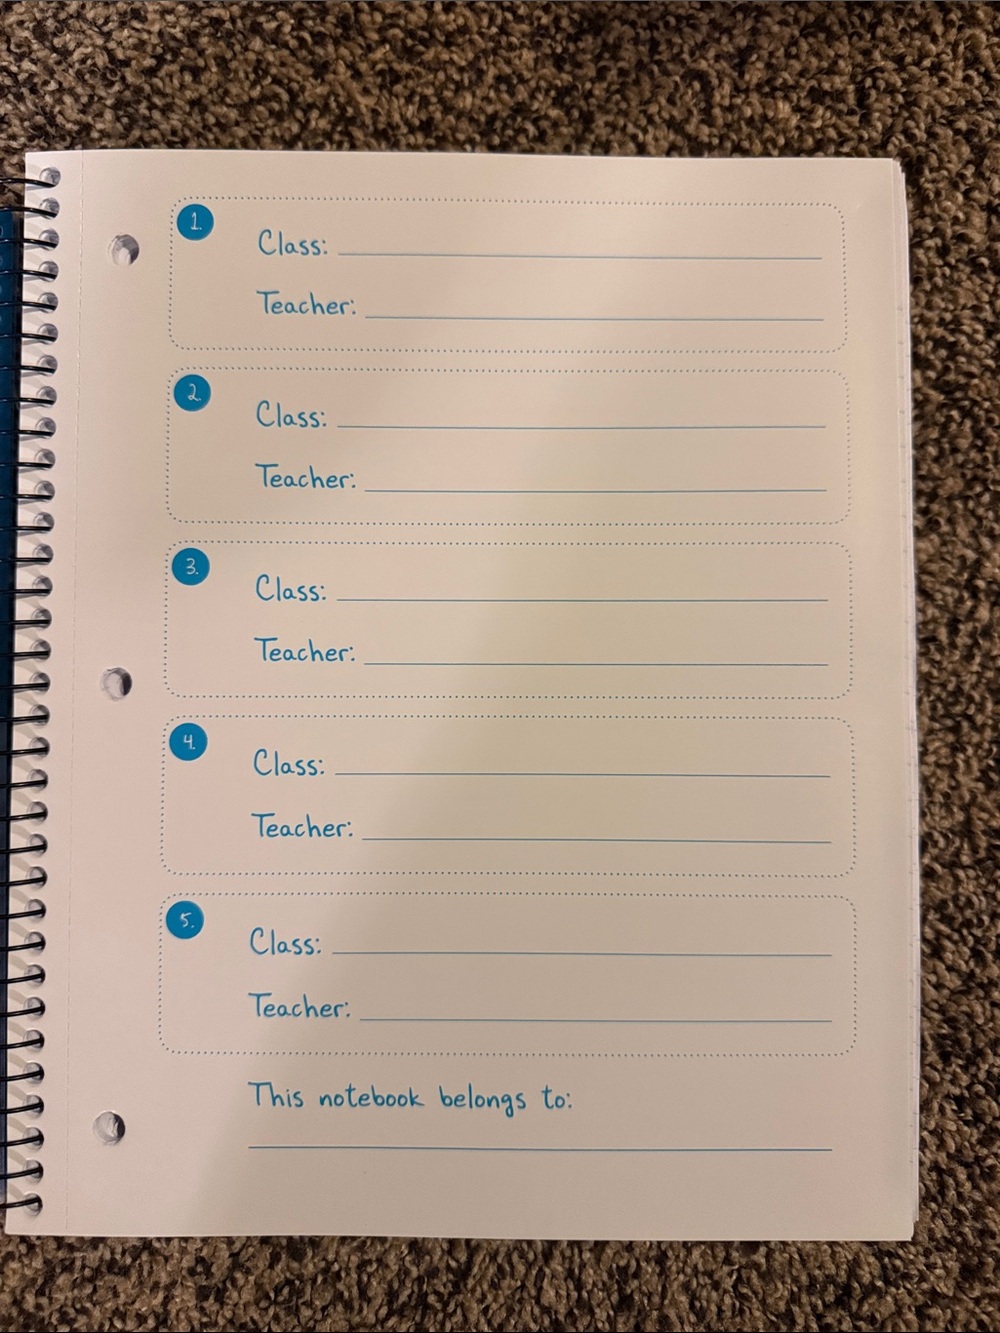 1.
Class:
Teacher:
2.
Class:
Teacher:
3.
Class:
Teacher:
4.
Class:
Teacher:
5.
Class:
Teacher:
This notebook belongs to: